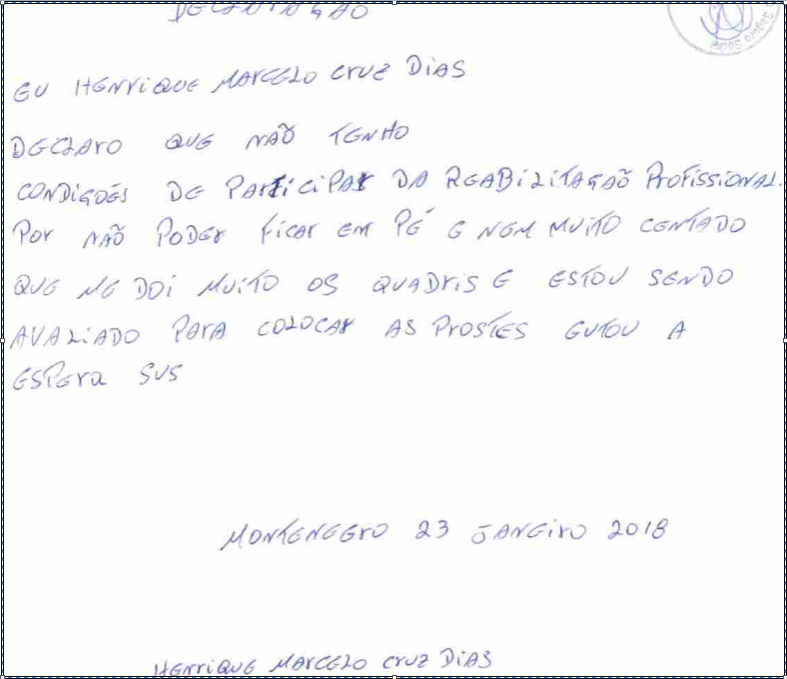 DECLARAÇÃO
EU HENRIQUE MARCELO CRUZ DIAS
DECLARO QUE NÃO TENHO
CONDIÇÕES DE PARTICIPAR DA REABILITAÇÃO PROFISSIONAL.
POR NÃO PODER FICAR EM PÉ E NEM MUITO CENTADO
QUE ME DOI MUITO OS QUADRIS E ESTOU SENDO
AVALIADO PARA COLOCAR AS PROSTES A
ESPERA SUS
MONTENEGRO 23 JANEIRO 2018
HENRIQUE MARCELO CRUZ DIAS